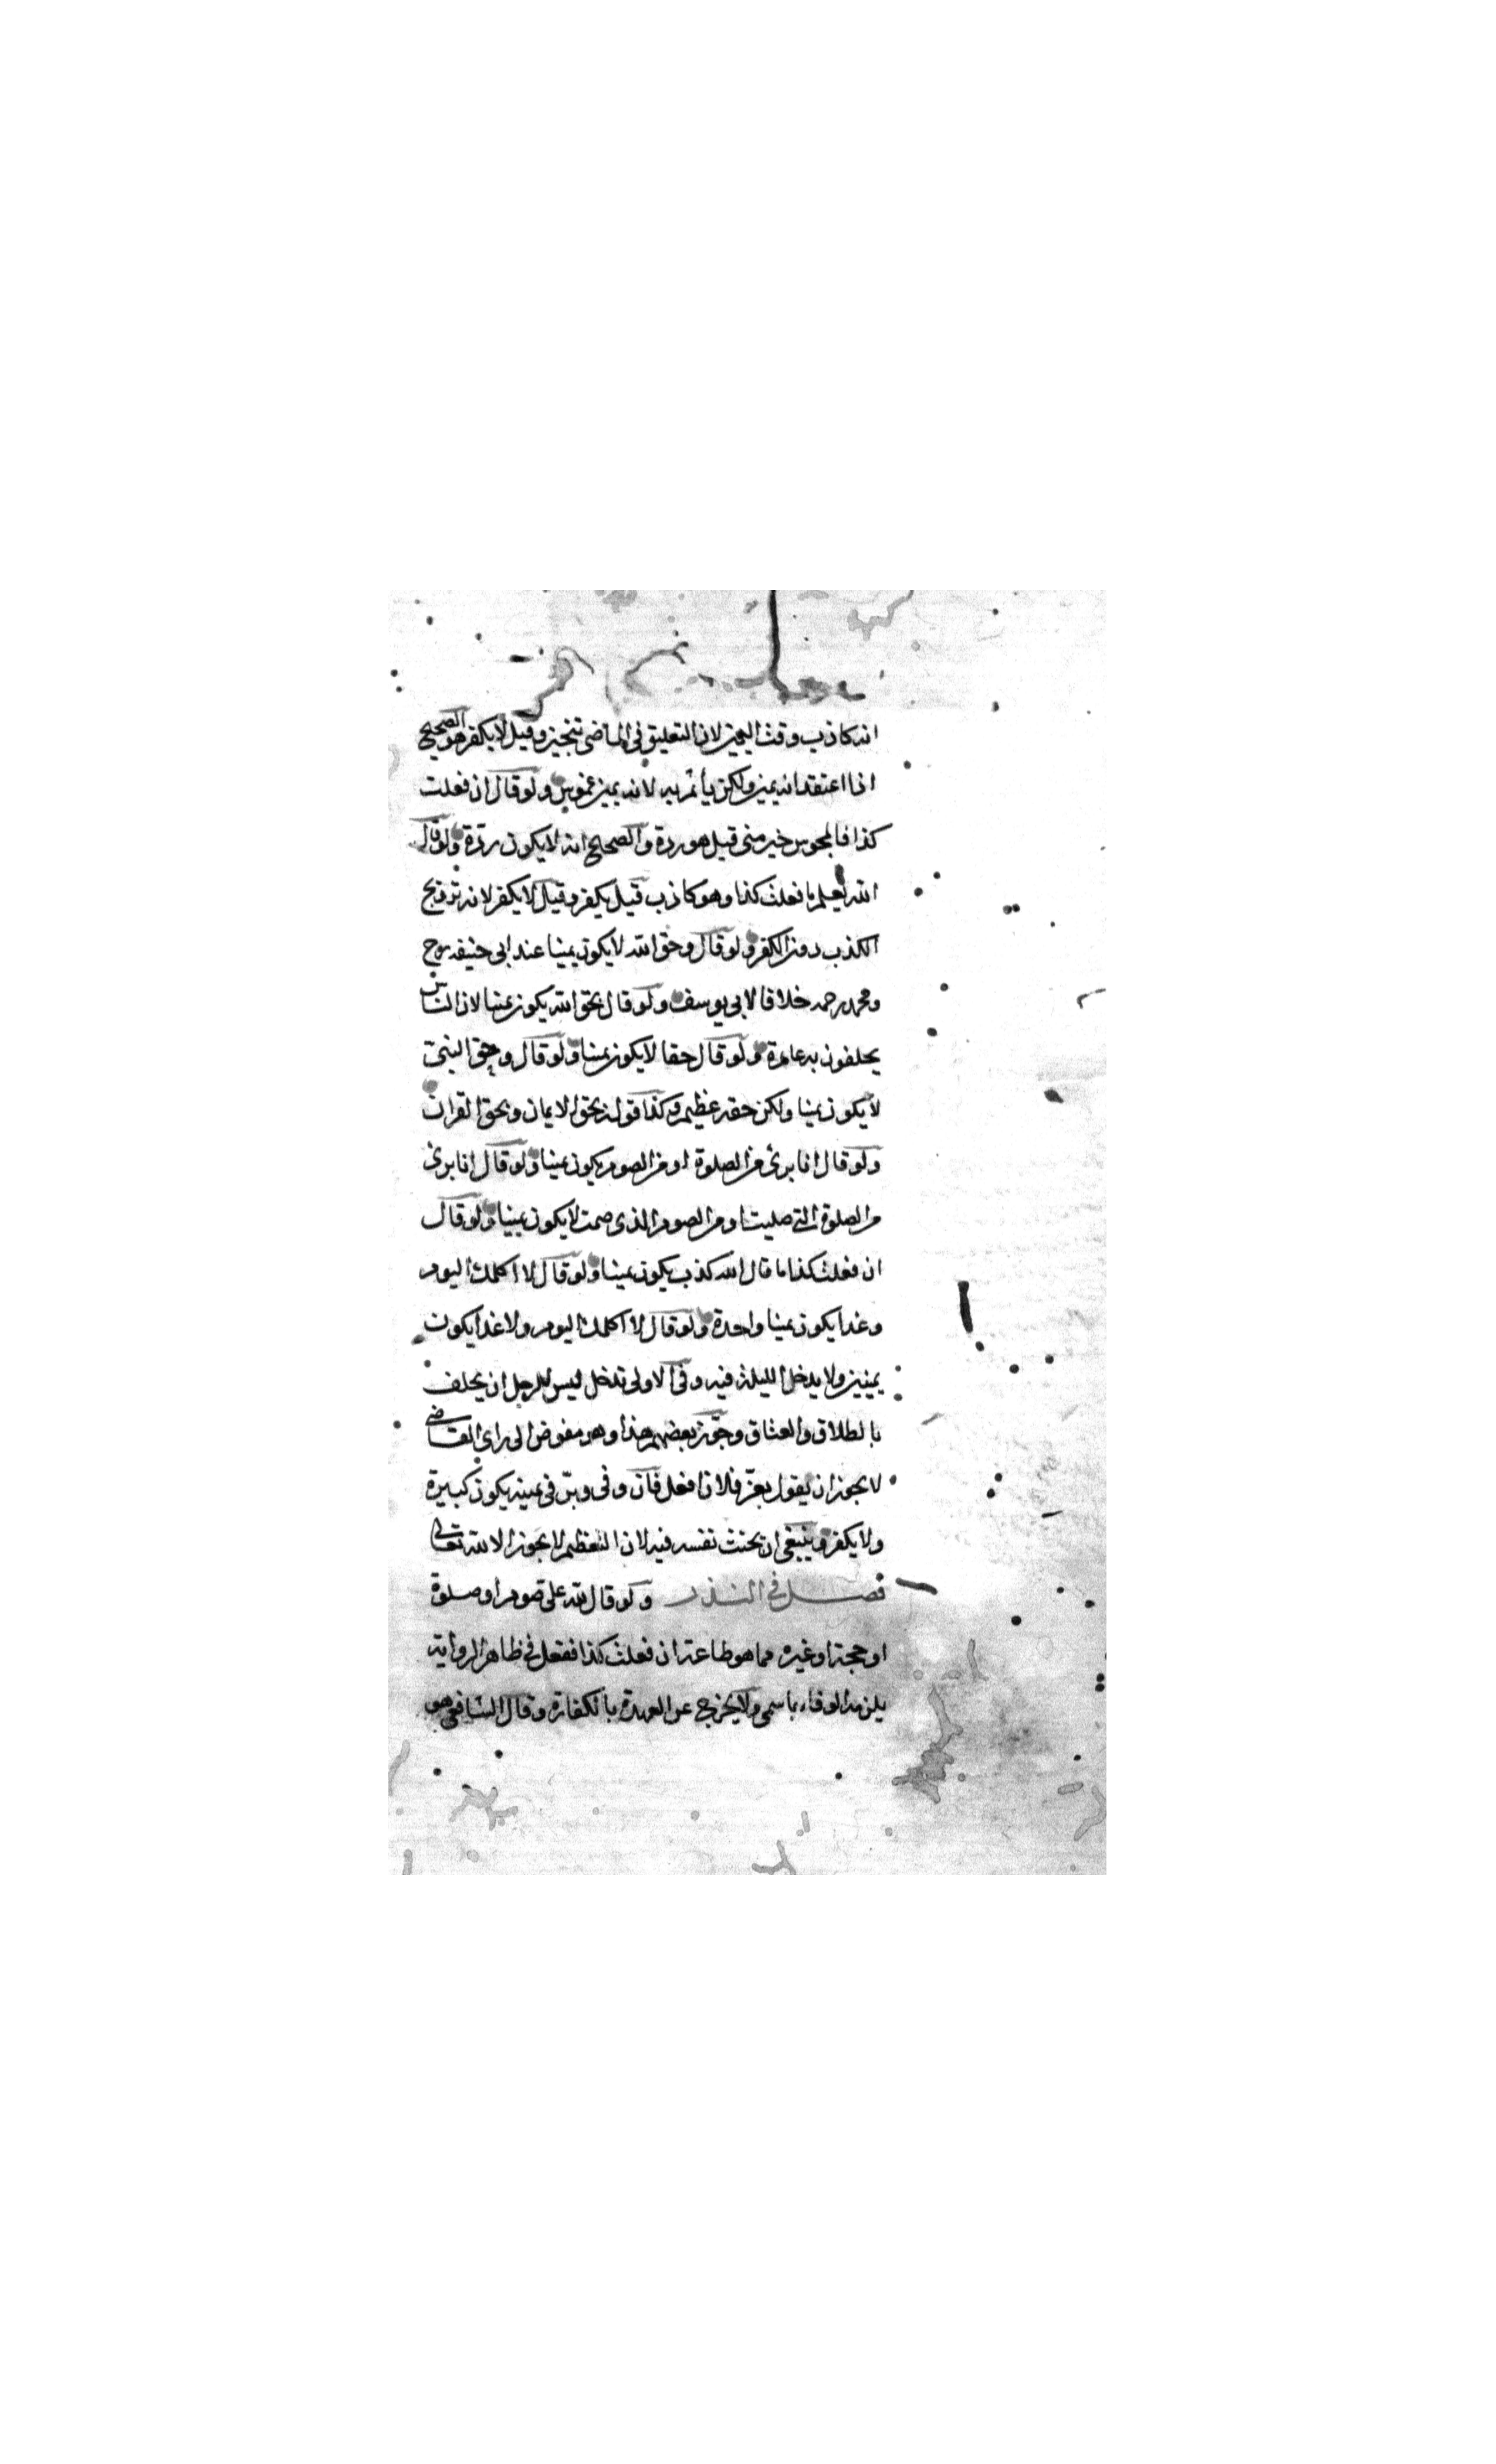 انه كاذب وقت اليمين لان التعليق فى الماضى تنجيز وقيل لا يكفر هو الصحيح
اذا اعتقد انه يمين ولكن يأثم به لانه يمين غموس ولو قال ان فعلت
كذا فالمجوس خير منى قيل هو ردة والصحيح انه لا يكون ردة ولو قال
الله يعلم ما فعلت كذا وهو كاذب قيل يكفر وقيل لا يكفر لانه ترويج
الكذب دون الكفر ولو قال وحق الله لا يكون يمينا عند ابى حنيفه رح
ومحمد رحمه خلافا لابى يوسف ولو قال بحق الله يكون يمينا لان الناس
يحلفون به عادة ولو قال حقا لا يكون يمينا ولو قال وحق النبى
لا يكون يمينا ولكن حقه عظيم وكذا قوله بحق الايمان وبحق القران
ولو قال انا برئ من الصلوة او من الصوم يكون يمينا ولو قال انا برئ
من الصلوة التى صليت او من الصوم الذى صمت لا يكون يمينا ولو قال
ان فعلت كذا ما قال الله كذب يكون يمينا ولو قال لا اكلمك اليوم
وغدا يكون يمينا واحدة ولو قال لا اكلمك اليوم ولا غدا يكون
يمينين ولا يدخل الليلة فيه وفى الاولى تدخل ليس للرجل ان يحلف
بالطلاق والعتاق وجوز بعضهم هذا وهو مفوض الى راى القاضى
لا يجوز ان يقول بعز فلان افعل فان وفى وبر فى يمينه يكون كبيرة
ولا يكفر وينبغى ان يحنث نفسه فيه لان التعظيم لا يجوز الا لله تعالى
فصل فى النذر ولو قال لله على صوم او صلوة
او حجة او غيره مما هو طاعة ان فعلت كذا ففعل فى ظاهر الرواية
يلزمه الوفاء بما سمى ولا يخرج عن العهدة بالكفارة وقال الشافعى هو